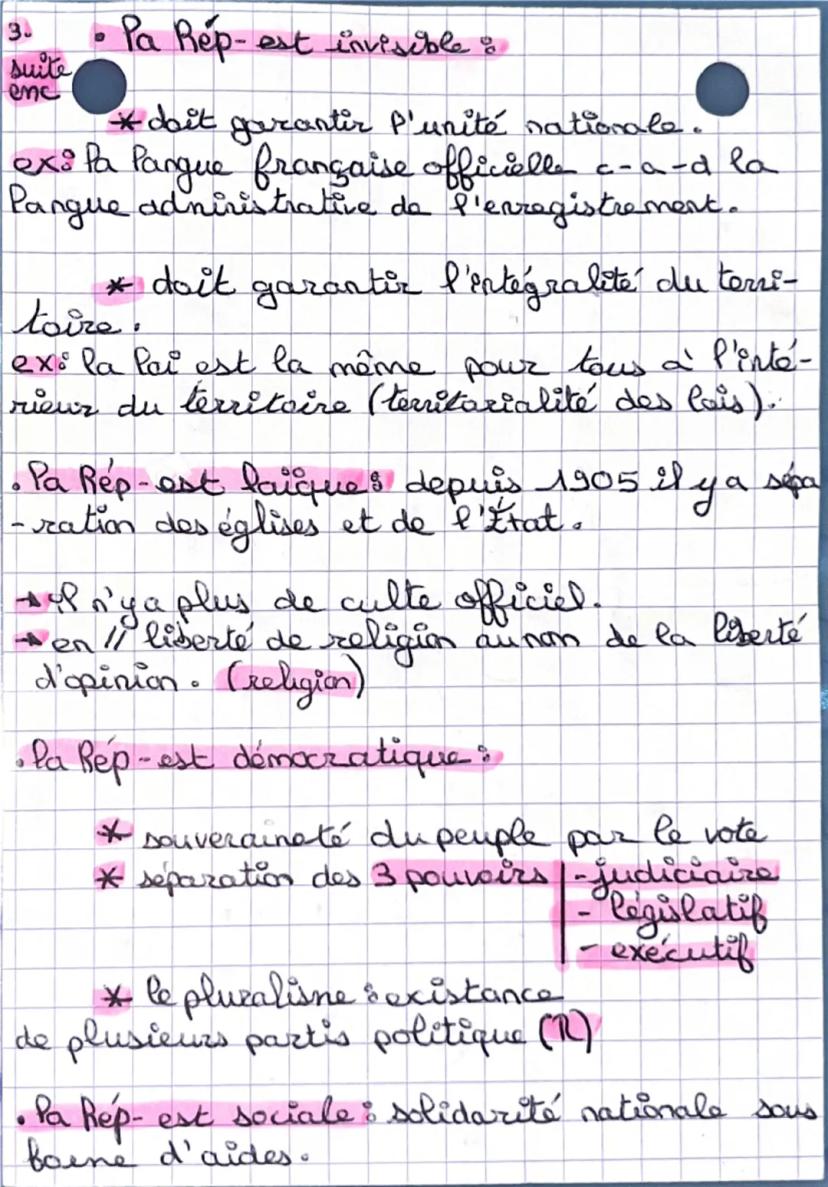 3.
suite
enc
• la Rép- est invisible :
* doit garantir l'unité nationale.
ex: la langue française officielle c-a-d la
langue administrative de l'enregistrement.
* doit garantir l'intégralité du terri-
toire.
ex: la loi est la même pour tous à l'inté-
rieur du territoire (territorialité des lois).
• la Rép- est laïque: depuis 1905 il y a sépa
-ration des églises et de l'État.
→ il n'y a plus de culte officiel.
→ en // liberté de religion au nom de la liberté
d'opinion. (religion)
• la Rép- est démocratique :
* souveraineté du peuple par le vote
* séparation des 3 pouvoirs | - judiciaire
- législatif
- exécutif
* le pluralisme : existance
de plusieurs partis politique (π)
• la Rép- est sociale : solidarité nationale sous
forme d'aides.